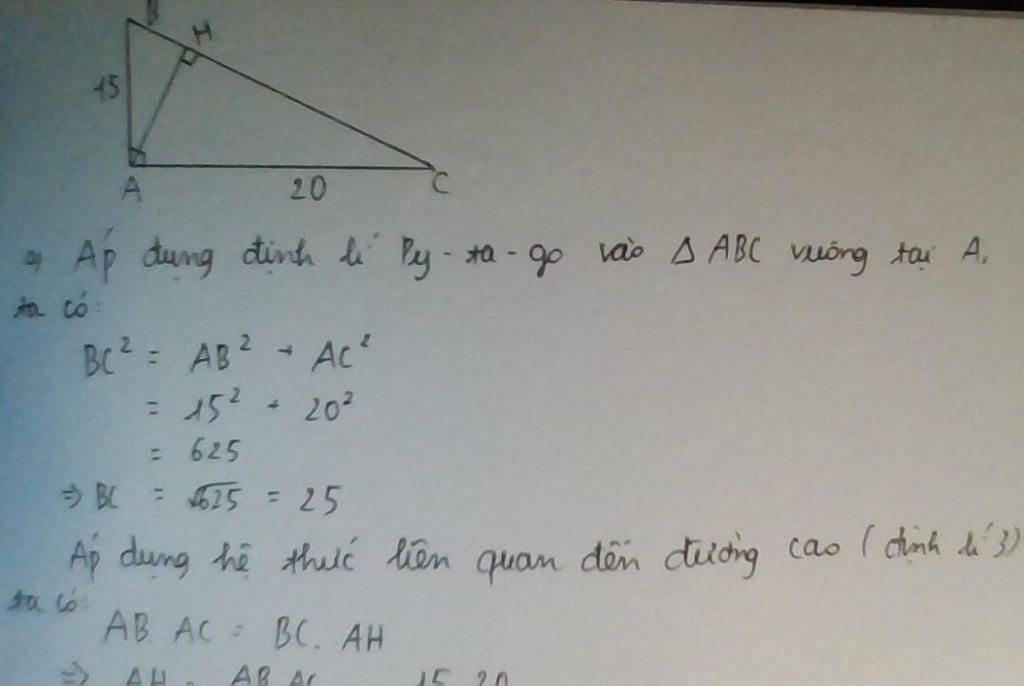 B
H
15
A
20
C
a) Áp dụng định lí Py-ta-go vào Δ ABC vuông tại A,
ta có:
BC² = AB² + AC²
= 15² + 20²
= 625
⇒ BC = √625 = 25
Áp dụng hệ thức liên quan đến đường cao (định lí 3)
ta có:
AB. AC = BC. AH
⇒ AH = AB.AC 15.20